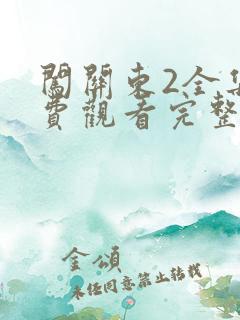 闖關東2全集
費觀看完整
金頌
未經同意禁止转載